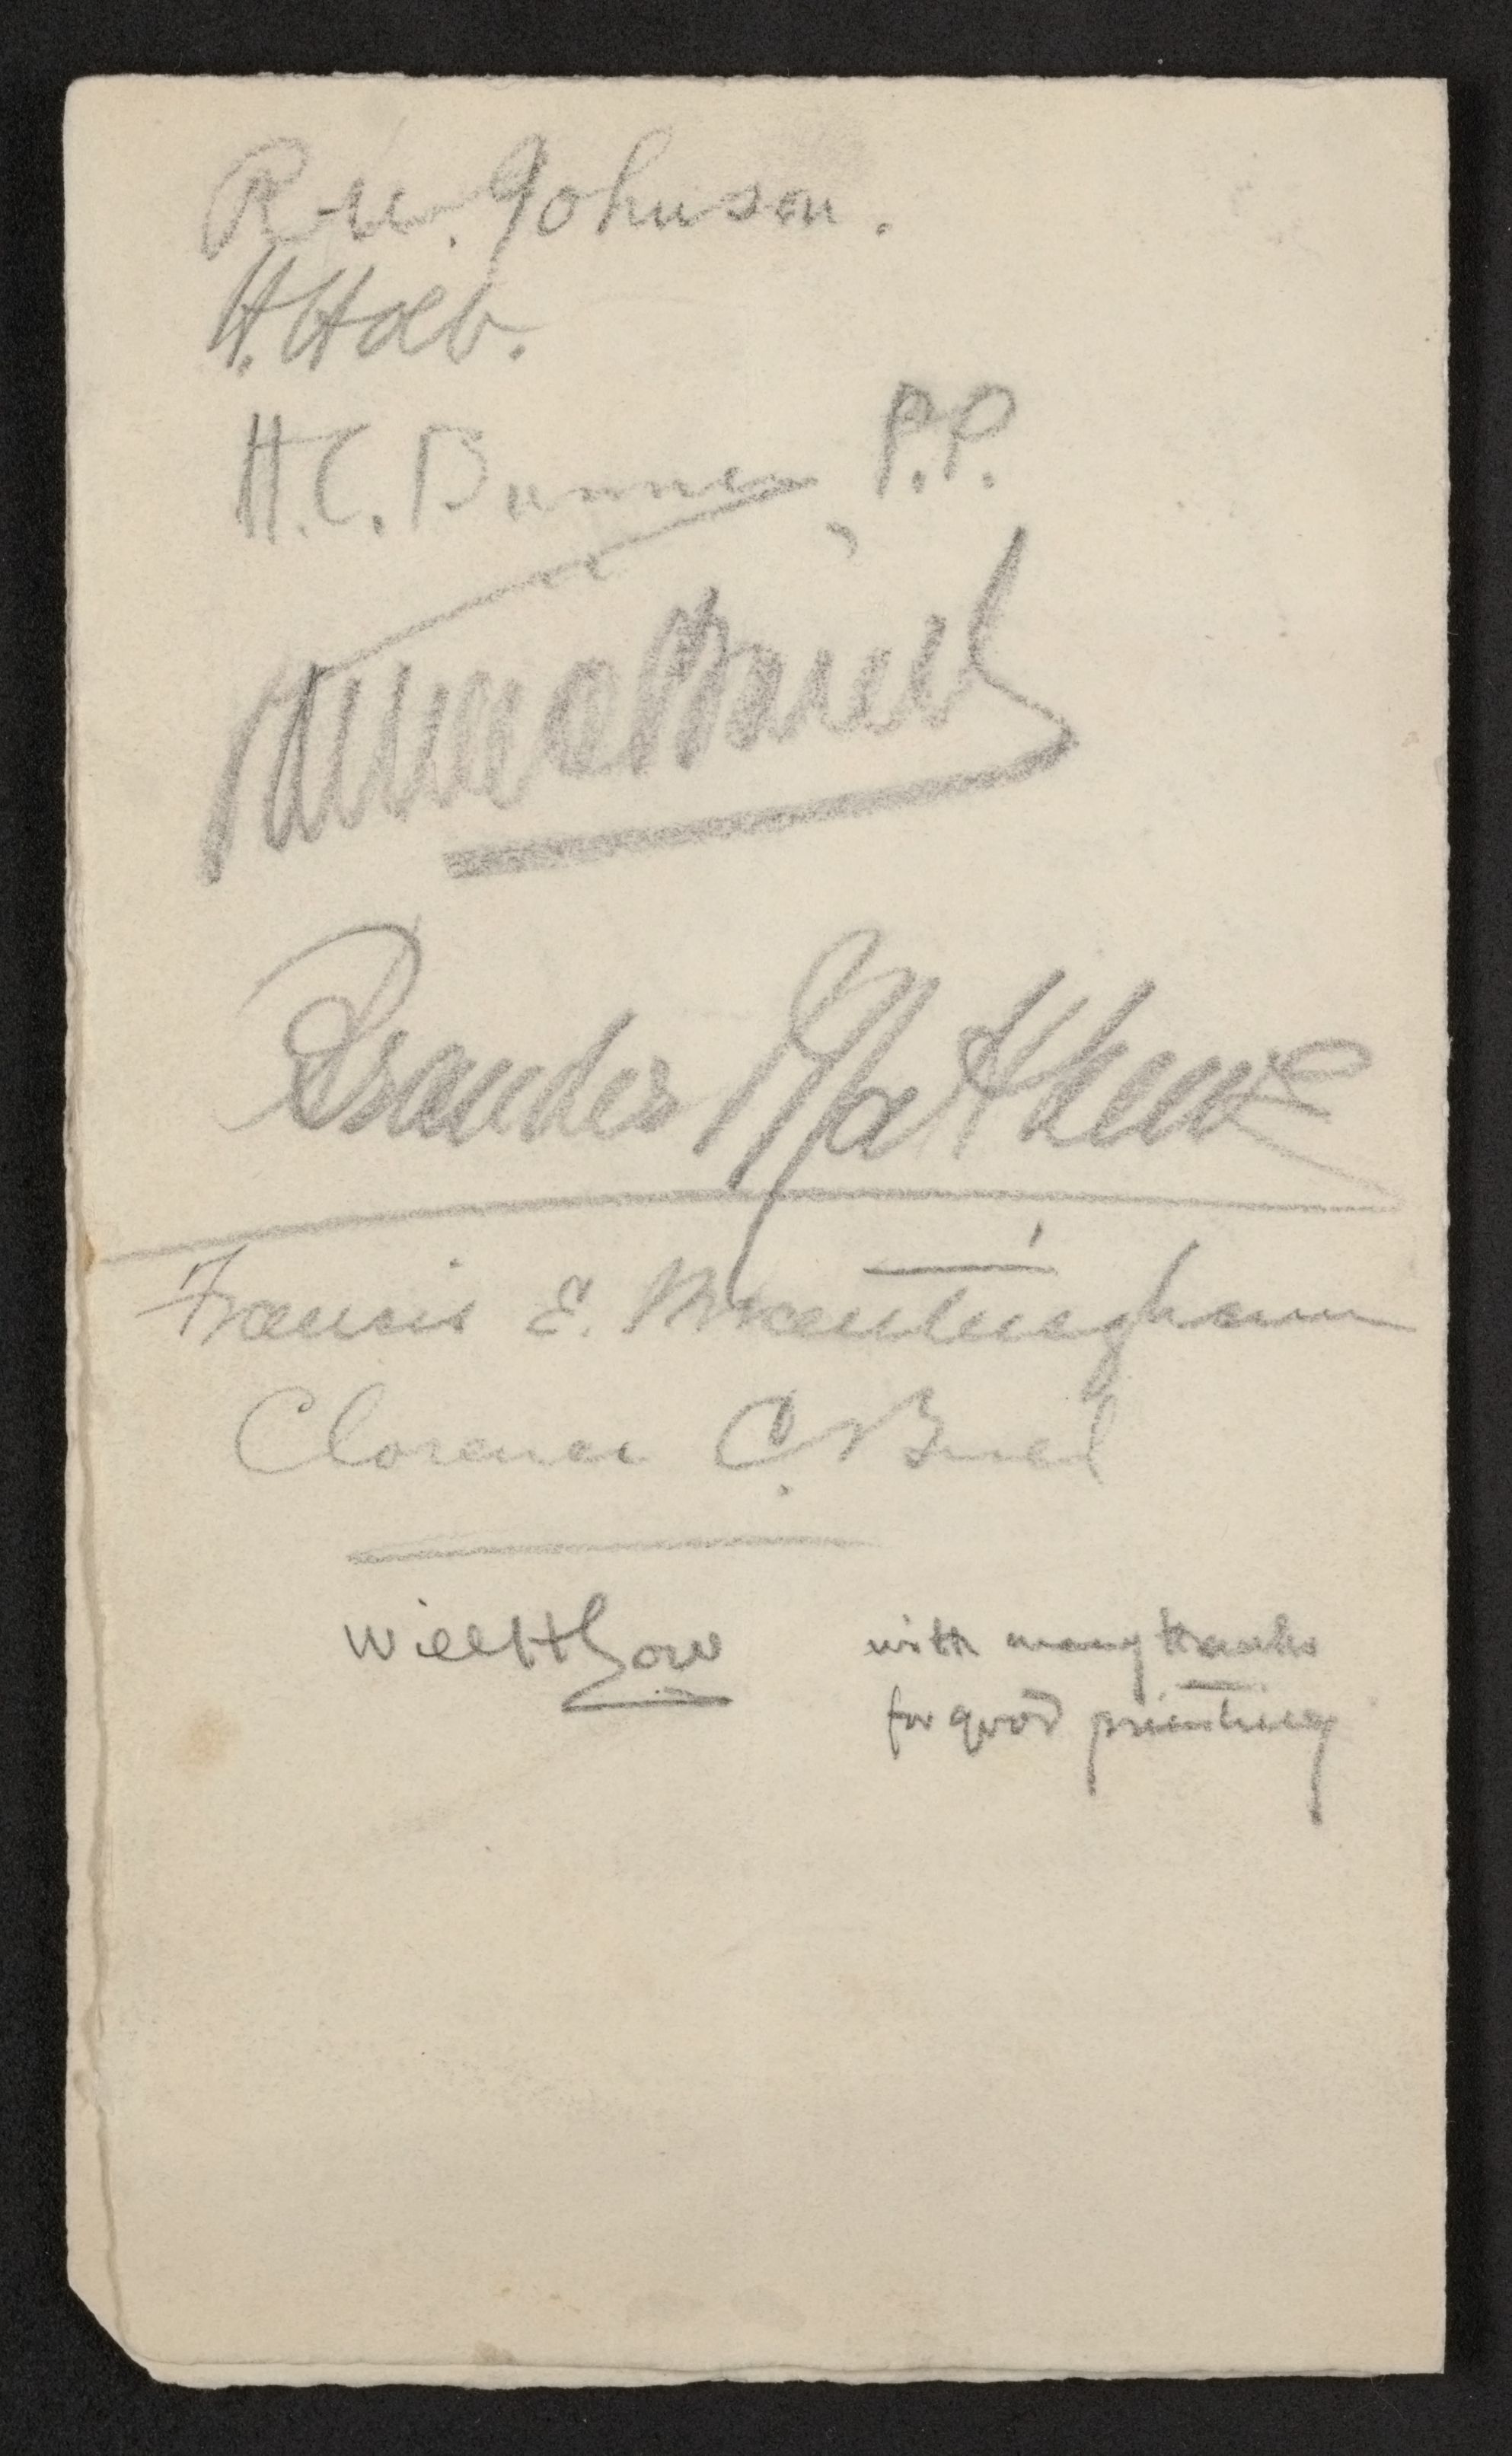 R. U. Johnson.
H. Holb.
H. C. Bunner, P.P.
Brander Matthews
Francis E.
Clarence C. Buel
Will H Low with many thanks
for good printing